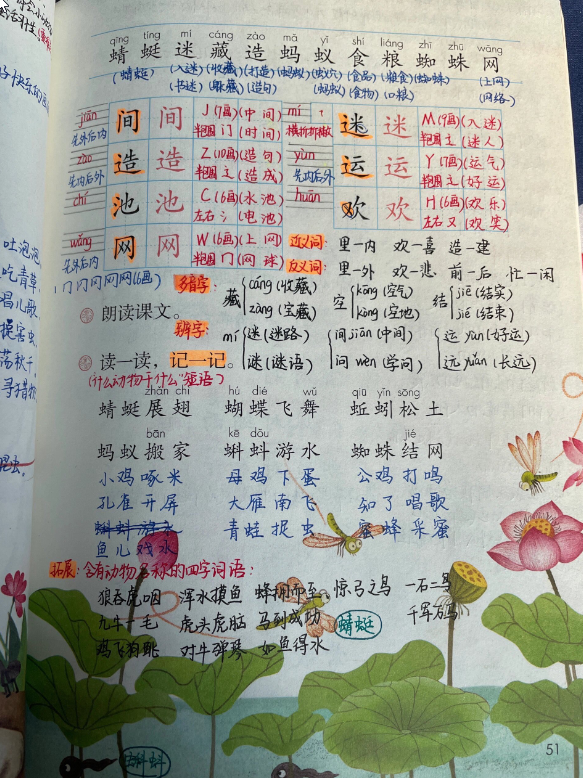 qīng tíng mí cáng zào mǎ yǐ shí liáng zhī zhū wǎng
蜻蜓迷藏造蚂蚁食粮蜘蛛网
(蜻蜓) (入迷) (收藏) (打造) (蚂蚁) (蚁穴) (食品) (粮食) (蜘蛛) (上网)
(书迷) (躲藏) (造句) (蚂蚁) (食物) (口粮) (网络)
jiān 间 间 J (7画) (中间) mí 迷 迷 M (9画) (入迷)
先外后内 半包围 门 (时间) 横折折撇 半包围 辶 (迷人)
zào 造 造 Z (10画) (造句) yùn 运 运 Y (7画) (运气)
先内后外 半包围 辶 (造成) 先内后外 半包围 辶 (好运)
chí 池 池 C (6画) (水池) huān 欢 欢 H (6画) (欢乐)
左右 氵 (电池) 左右 又 (欢笑)
wǎng 网 网 W (6画) (上网) 近义词: 里一内 欢一喜 造一建
先外后内 半包围 冂 (网球) 反义词: 里一外 欢一悲 前一后 忙一闲
多音字: 藏 cáng (收藏) 空 kōng (空气) 结 jiē (结实)
zàng (宝藏) kòng (空地) jié (结束)
朗读课文。
辨字: mí 迷 (迷路) 间 jiān (中间) 运 yùn (好运)
谜 (谜语) 问 wèn (学问) 远 yuǎn (长远)
读一读，记一记。
(什么动物干什么"短语)
zhǎn chì hú dié wǔ qiū yǐn sōng
蜻蜓展翅 蝴蝶飞舞 蚯蚓松土
bān kē dǒu jié
蚂蚁搬家 蝌蚪游水 蜘蛛结网
小鸡啄米 母鸡下蛋 公鸡打鸣
孔雀开屏 大雁南飞 知了唱歌
蝌蚪游水 青蛙捉虫 蜜蜂采蜜
鱼儿戏水
拓展: 含有动物名称的四字词语:
狼吞虎咽 浑水摸鱼 蜂拥而至 惊弓之鸟 一石二鸟
九牛一毛 虎头虎脑 马到成功 蜻蜓 千军万马
鸡飞狗跳 对牛弹琴 如鱼得水
蝌蚪
51
吐泡泡
吃青草
唱儿歌
捉害虫
荡秋千